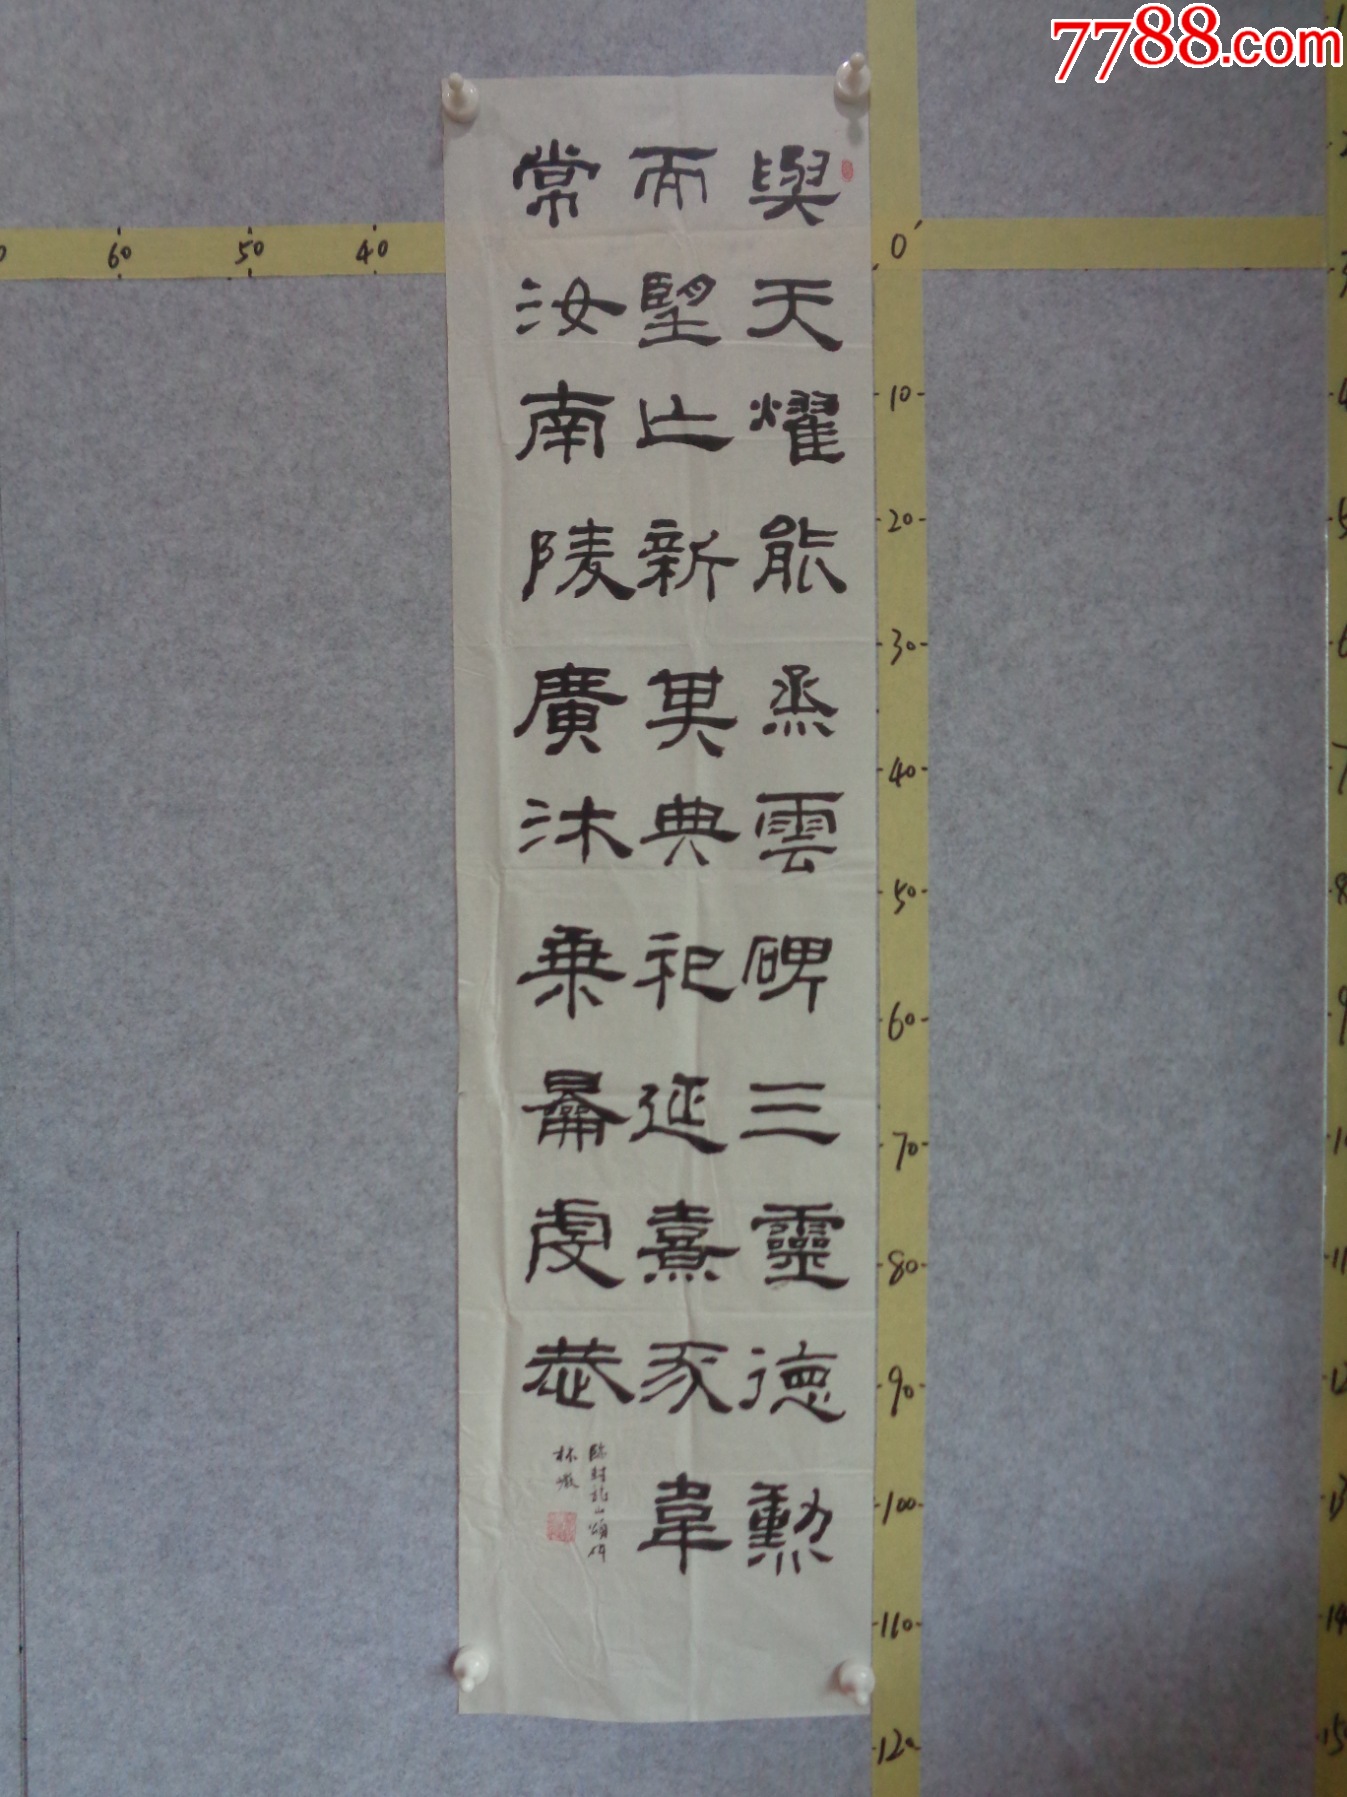 與天燿能烝雲碑三靈德勲
而望亡新其典祀延熹豕韋
常汝南陵廣沐乗龠虔恭
临封龙山頌碑
林
7788.com
60 50 40
0
10
20
30
40
50
60
70
80
90
100
110
120